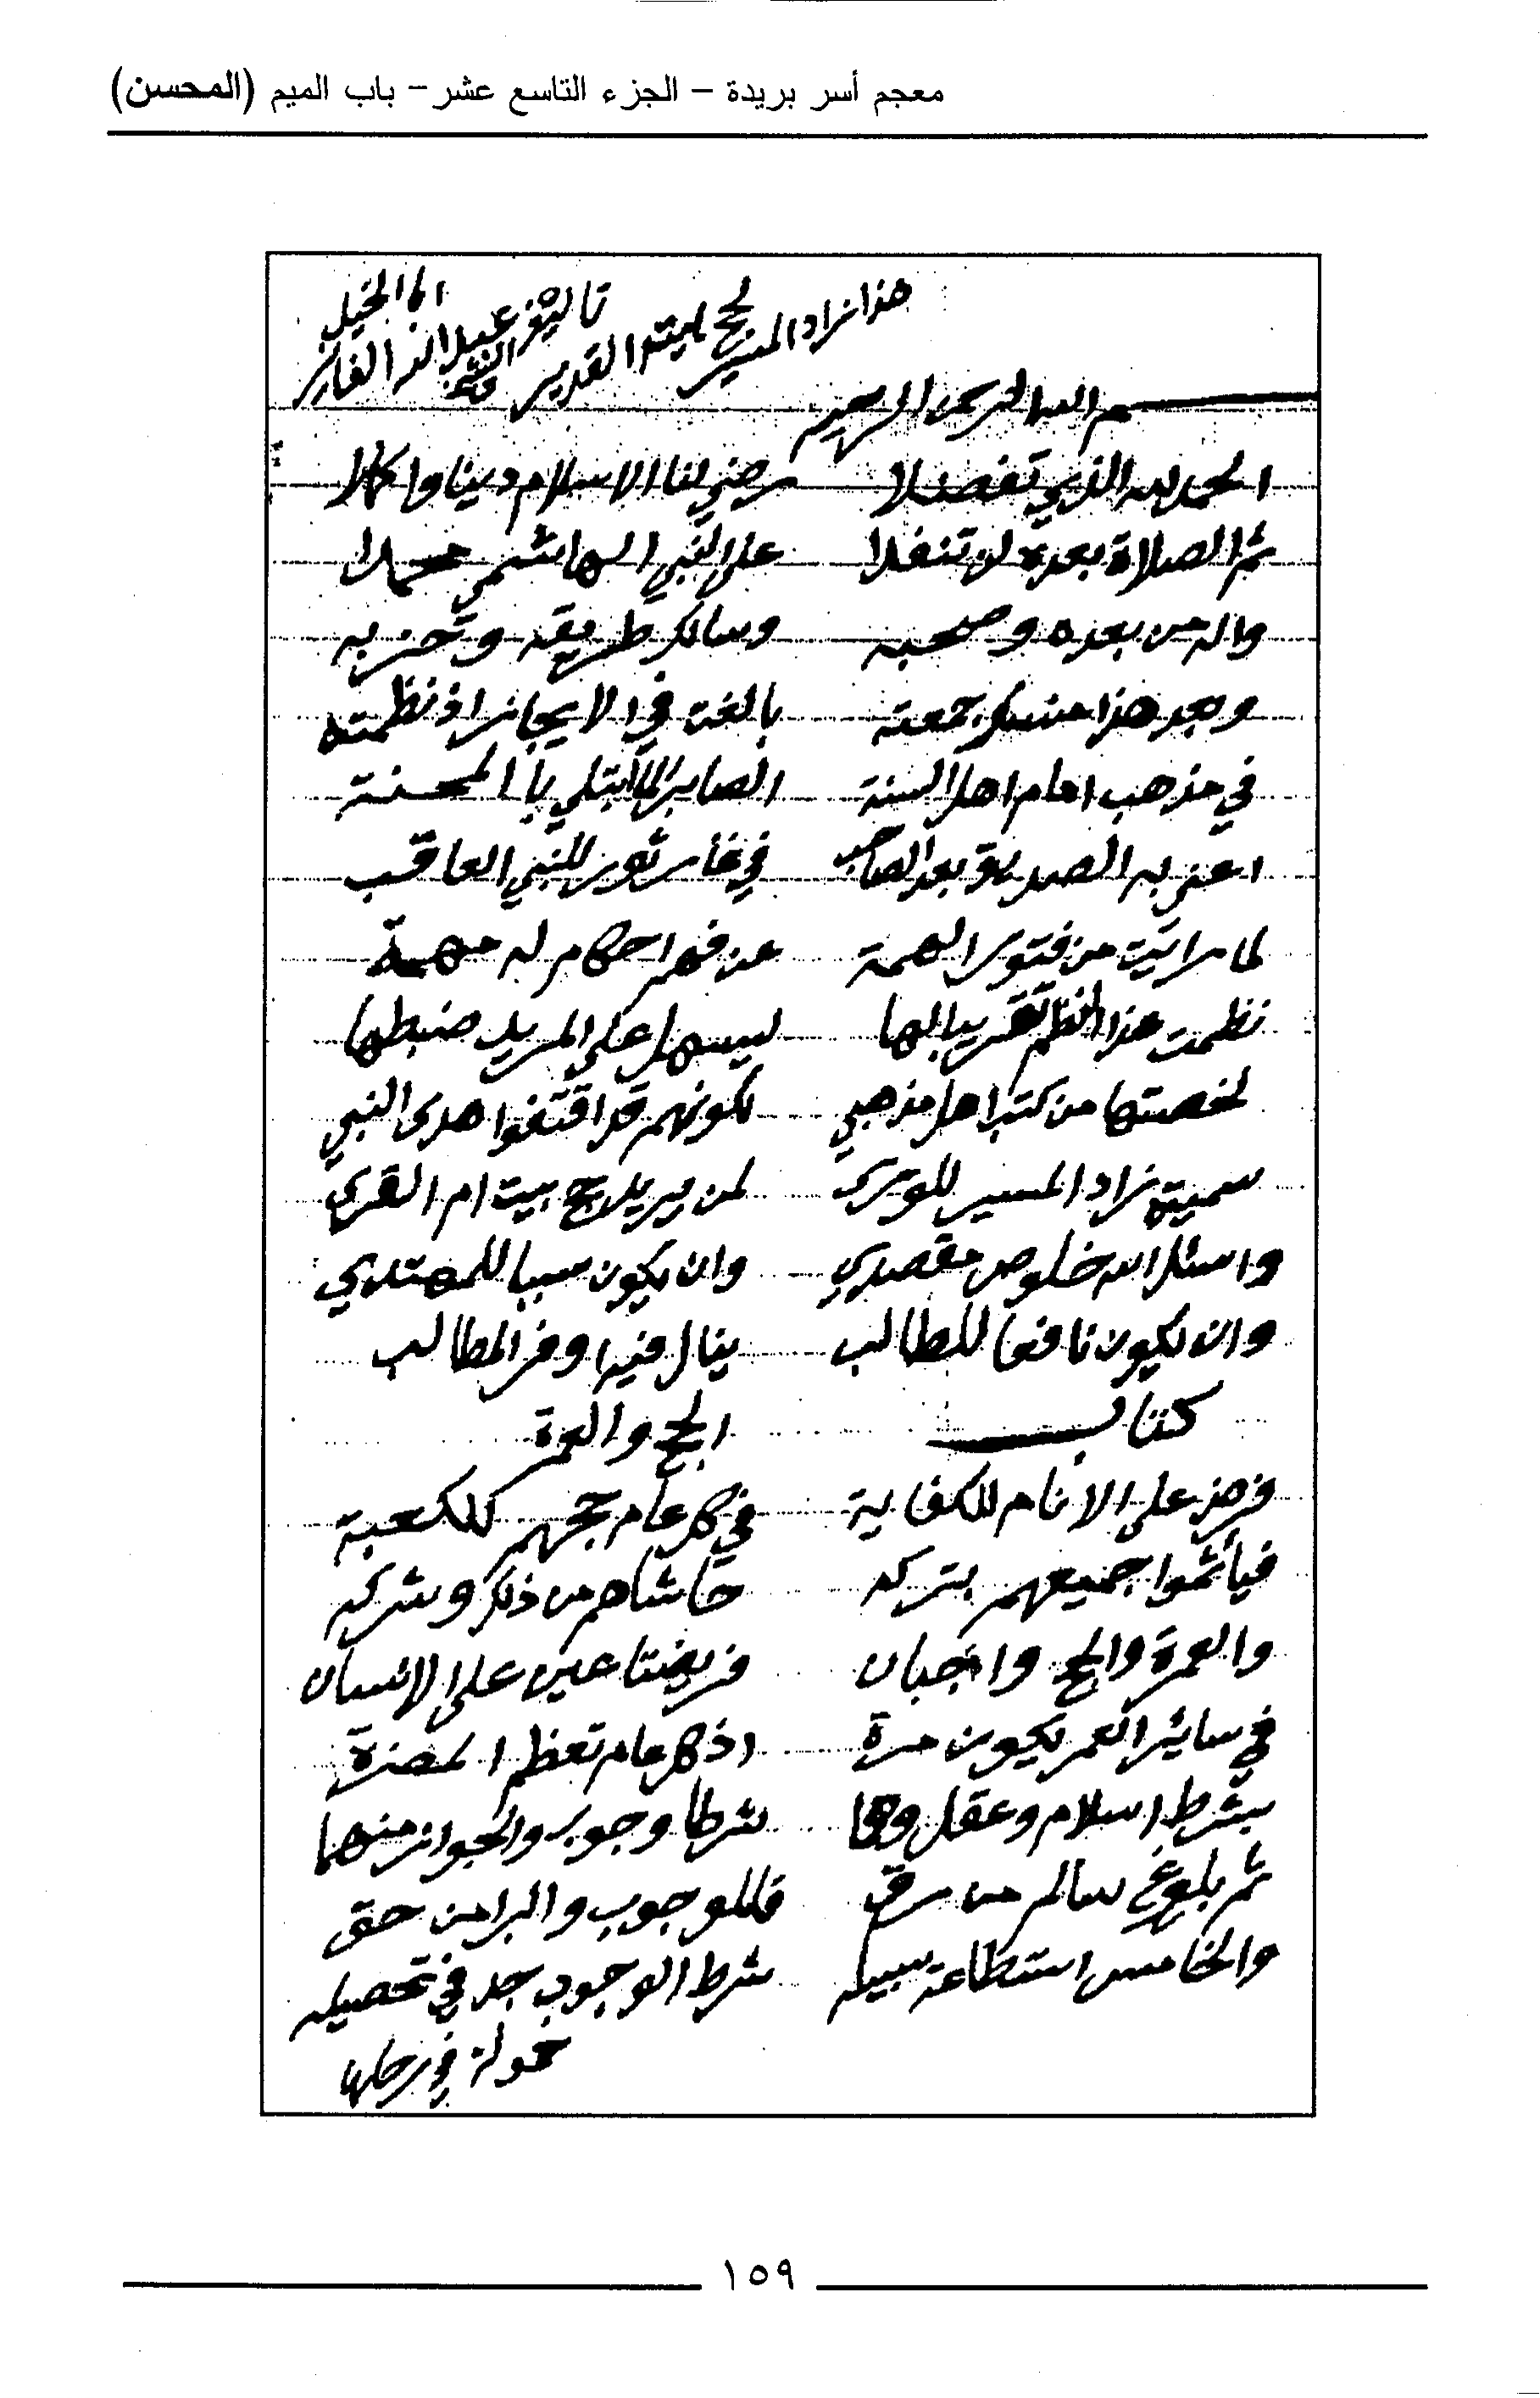 معجم أسر بريدة – الجزء التاسع عشر – باب الميم (المحسن)
هذا زاد المسير لحج بيت القدير تاليف الفقير عبد الله الفايز ابا الخيل
بسم الله الرحمن الرحيم
الحمد لله الذي تفضلا رضي لنا الاسلام دينا واكملا
ثم الصلاة بعده لن تنفدا على النبي الهاشمي محمدا
واله من بعده وصحبه وسالك طريقه وحزبه
وبعد هذا منسك جمعته بالغت في الايجاز اذ نظمته
في مذهب امام اهل السنة الصابر لما ابتلي بالمحنة
اعني به الصديق بعد الصاحب في غار ثور للنبي العاقب
لما رايت من فتور الهمة عن فهم احكام له مهمة
نظمت هذا النظم تقريبا لها ليسهل على المريد ضبطها
لخصتها من كتب اهل مذهبي لكونهم قد اقتفوا هدى النبي
سميته زاد المسير للورى لمن يريد حج بيت ام القرى
واسئل الله خلوص مقصدي وان يكون سببا للمهتدي
وان يكون نافعا للطالب ينال فيه اوفر المطالب
كتاب الحج والعمرة
فرض على الانام للكفاية في كل عام حجهم للكعبة
فيأثموا جميعهم بتركه حاشاهم من ذلك وشركه
والعمرة والحج واجبان فريضتا عين على الانسان
في سائر العمر يكون مرة اذ كل عام تعظم المضرة
بشرط اسلام وعقل وهما شرطا وجوب والجواز منهما
ثم بلوغ سالم من رق فللوجوب والبرا من حق
والخامس استطاعة سبيله شرط الوجوب جد في تحصيله
في رحلها
١٥٩